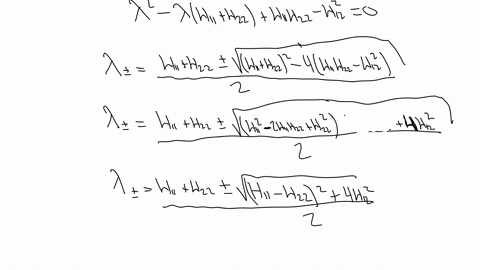 λ² − λ(H₁₁+H₂₂) + H₁₁H₂₂ − H₁₂² = 0
λ± = (H₁₁+H₂₂ ± √((H₁₁+H₂₂)² − 4(H₁₁H₂₂−H₁₂²))) / 2
λ± = (H₁₁+H₂₂ ± √((H₁₁²−2H₁₁H₂₂+H₂₂²) ... +4H₁₂²)) / 2
λ± = (H₁₁+H₂₂ ± √((H₁₁−H₂₂)² + 4H₁₂²)) / 2